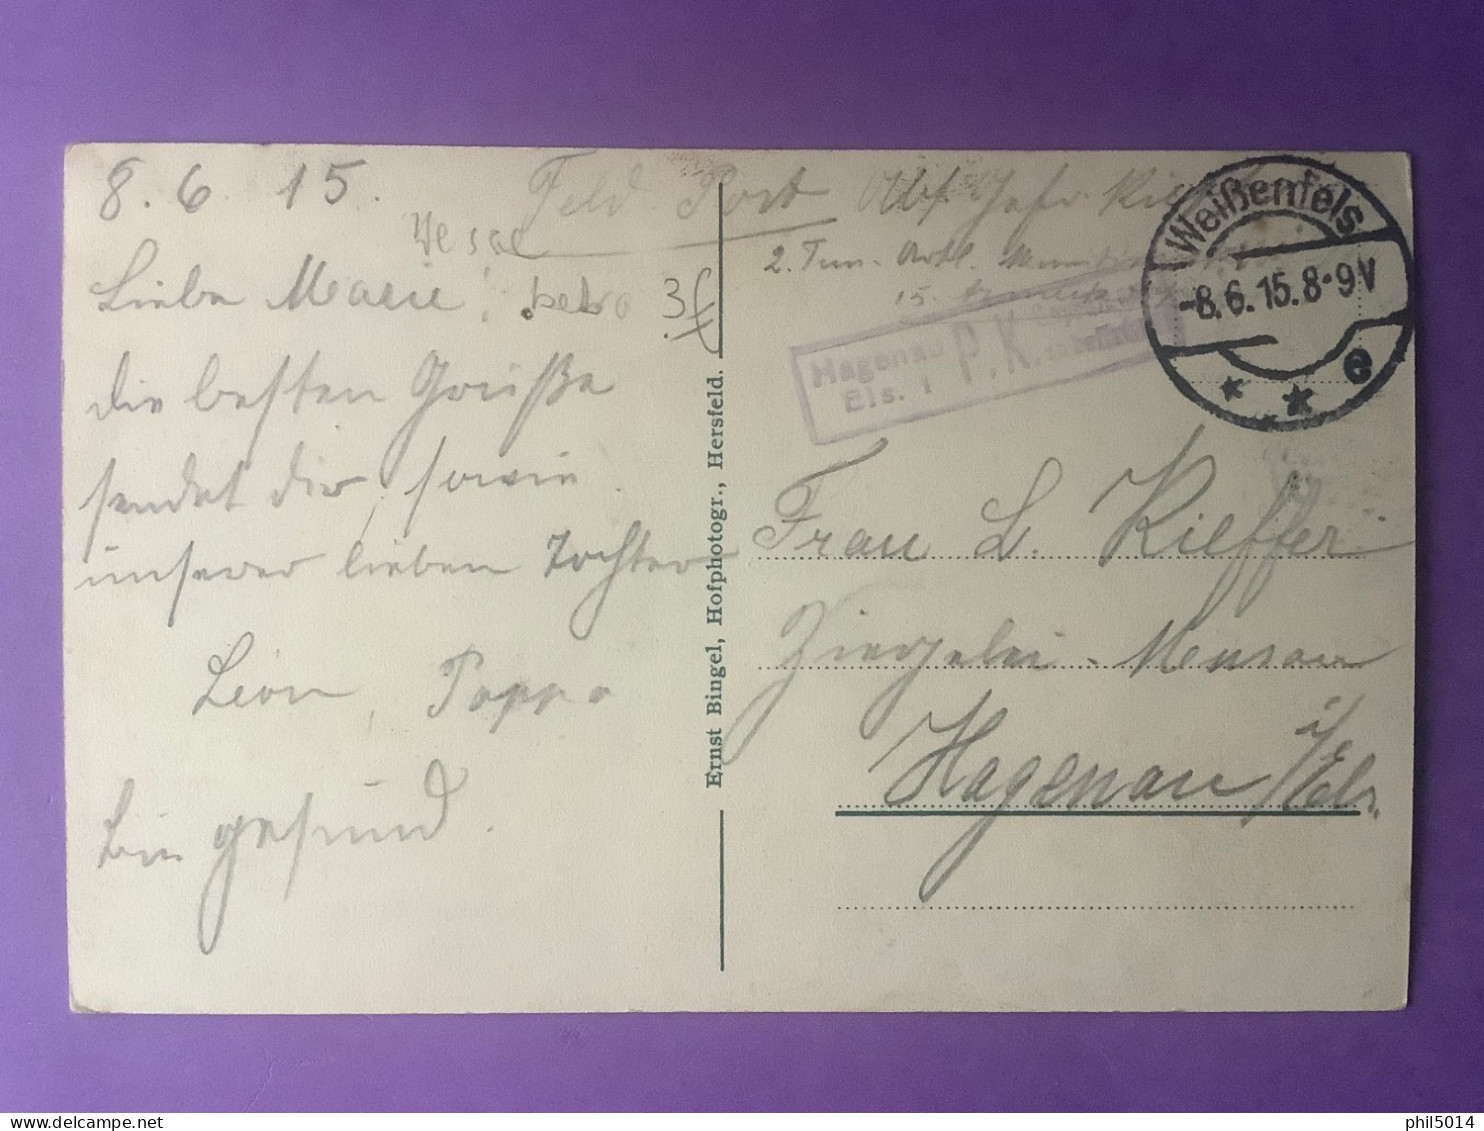 8. 6. 15.
Feld Post Abs. Gefr.
2. Artl.
15.
Weißenfels
-8.6.15.8-9V
* * e
Hagenau
Els. 1
P.K.
Liebe Marie!
3f
die besten Grüße
sendet dir sowie
unserer lieben Tochter
Léon, Pappa
bin gesund.
Ernst Bingel, Hofphotogr., Hersfeld.
Frau L. Kieffer
Ziegelei
Hagenau i/Els.
delcampe.net
phil5014